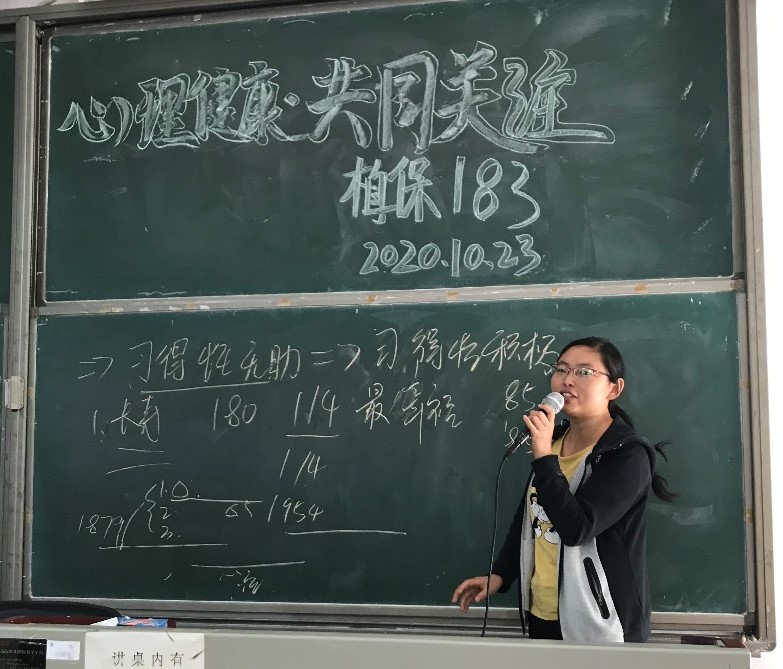 心理健康·共同关注
植保183
2020.10.23
⇒习得性无助⇒习得性积极
1.长寿 180 1/4 最幸福 85
1/4
1879 65 1954
讲桌内有